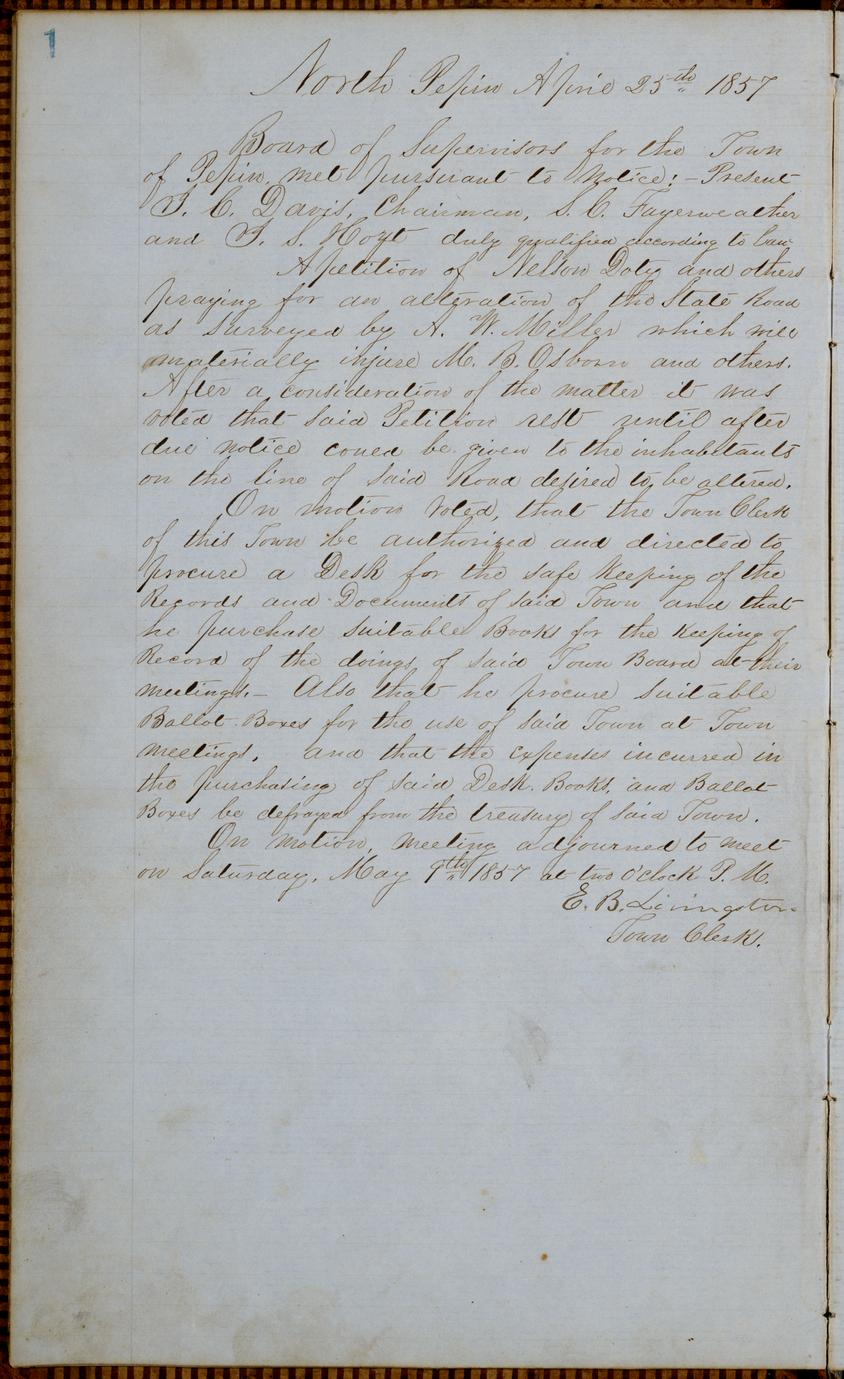 1
North Pepin April 25th 1857
Board of Supervisors for the Town
of Pepin, met pursuant to Notice; - Present
T. C. Davis, Chairman, S. C. Fayerweather
and T. S. Hoyt duly qualified according to law
A petition of Nelson Doty and others
praying for an alteration of the State Road
as surveyed by A. W. Miller which will
materially injure M. B. Osborn and others.
After a consideration of the matter it was
voted that said Petition rest until after
due notice could be given to the inhabitants
on the line of said Road desired to be altered.
On motion Voted, that the Town Clerk
of this Town be authorized and directed to
procure a Desk for the safe keeping of the
Records and Documents of said Town and that
he purchase suitable Books for the Keeping of
Record of the doings of said Town Board at their
meetings. - Also that he procure suitable
Ballot Boxes for the use of said Town at Town
meetings, and that the expenses incurred in
the purchasing of said Desk, Books, and Ballot
Boxes be defrayed from the treasury of said Town.
On motion, meeting adjourned to meet
on Saturday, May 9th 1857 at two O'clock P. M.
E. B. Livingston
Town Clerk.